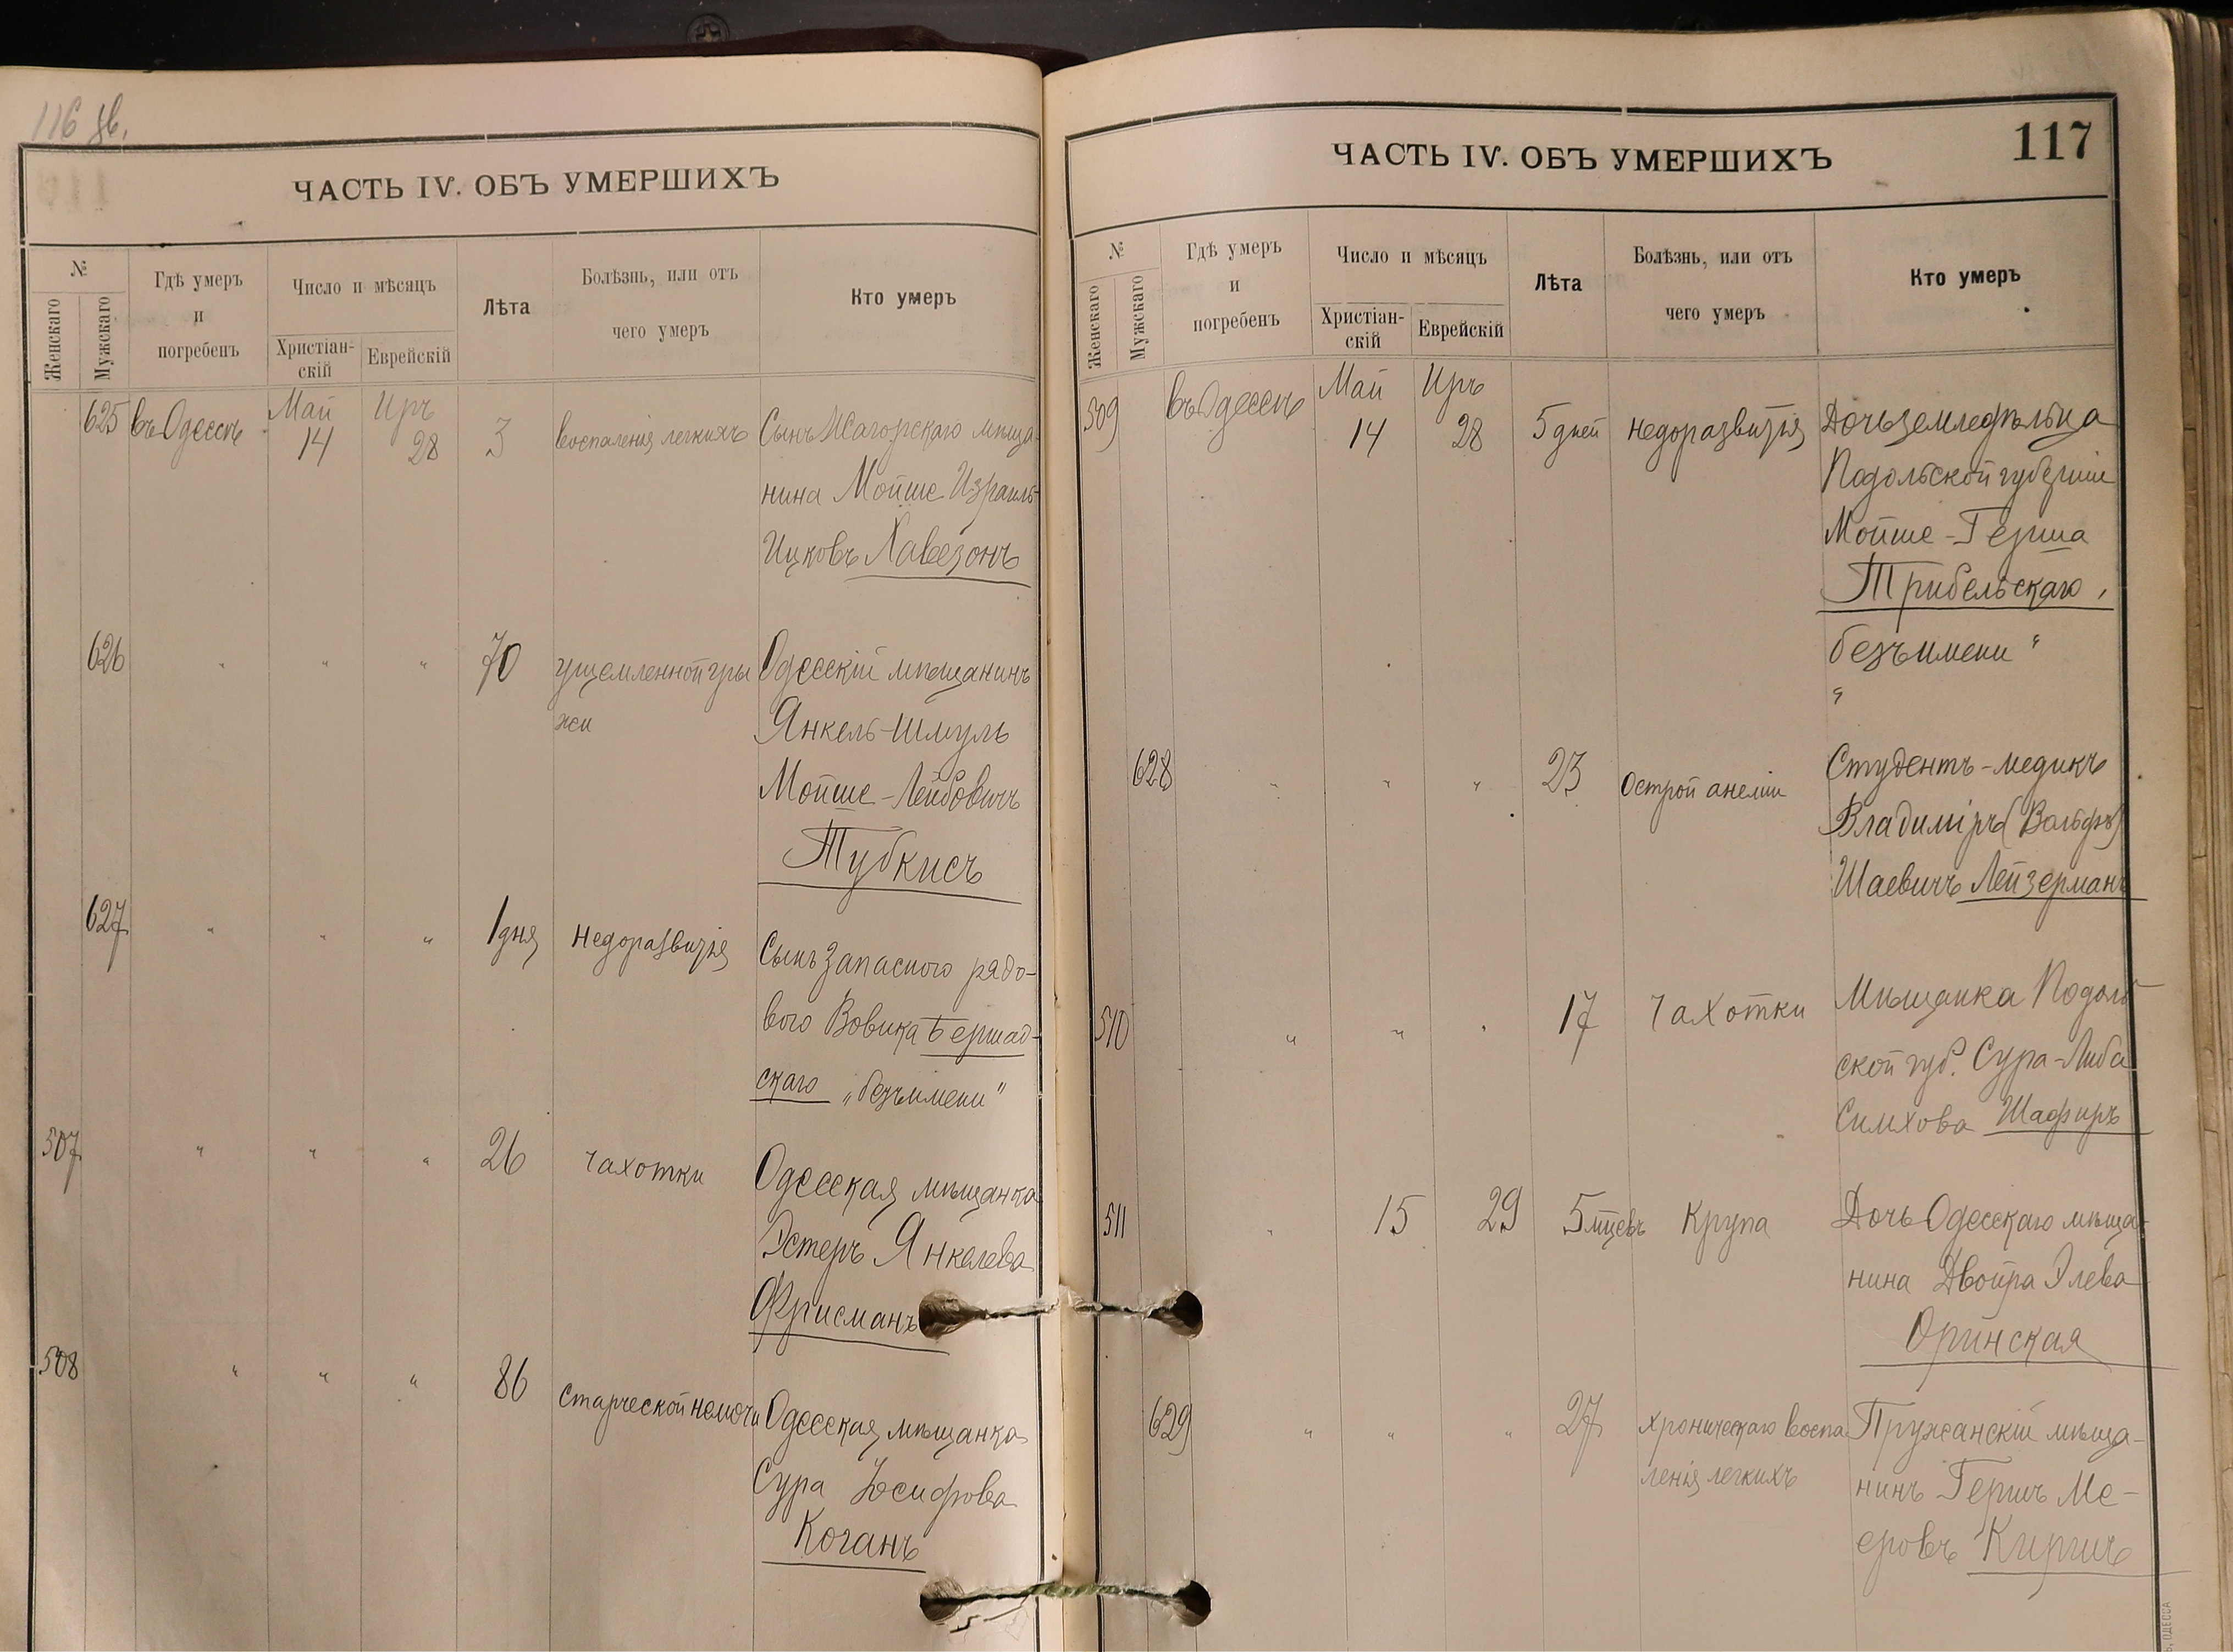 116 об.
ЧАСТЬ IV. ОБЪ УМЕРШИХЪ
№
Женскаго
Мужскаго
Гдѣ умеръ
и
погребенъ
Число и мѣсяцъ
Христіан-
скій
Еврейскій
Лѣта
Болѣзнь, или отъ
чего умеръ
Кто умеръ
625 въ Одессѣ Май 14 Иръ 28 3 воспаленія легкихъ Сынъ Жагорскаго мѣща-
нина Мойше Израиль-
Ицковъ Хавезонъ
626 " " " 70 ущемленной гры Одесскій мѣщанинъ
жи Янкель-Шмуль
Мойше-Лейбовичъ
Тубкисъ
627 " " " 1 дня недоразвитія Сынъ запасного рядо-
вого Вовика Бершад-
скаго „безъ имени"
507 " " " 26 чахотки Одесская мѣщанка
Эстеръ Янкелева
Фрисманъ
508 " " " 86 старческой немочи Одесская мѣщанка
Сура Іосифова
Коганъ
ЧАСТЬ IV. ОБЪ УМЕРШИХЪ
117
№
Женскаго
Мужскаго
Гдѣ умеръ
и
погребенъ
Число и мѣсяцъ
Христіан-
скій
Еврейскій
Лѣта
Болѣзнь, или отъ
чего умеръ
Кто умеръ
509 въ Одессѣ Май 14 Иръ 28 5 дней недоразвитія Дочь земледѣльца
Подольской губерніи
Мойше-Герша
Трибельскаго,
безъ имени "
"
628 " " " 23 Острой анеміи Студентъ-медикъ
Владиміръ (Вольфъ)
Шаевичъ Лейзерманъ
510 " " " 17 чахотки Мѣщанка Подоль-
ской губ. Сура-Либа
Симхова Шафиръ
511 " 15 29 5 мѣцевъ Крупа Дочь Одесскаго мѣща-
нина Двойра Элева
Оринская
629 " " " 27 хроническаго воспа Пружанскій мѣща-
ленія легкихъ нинъ Гершъ Ме-
еровъ Киршъ
ОДЕССА